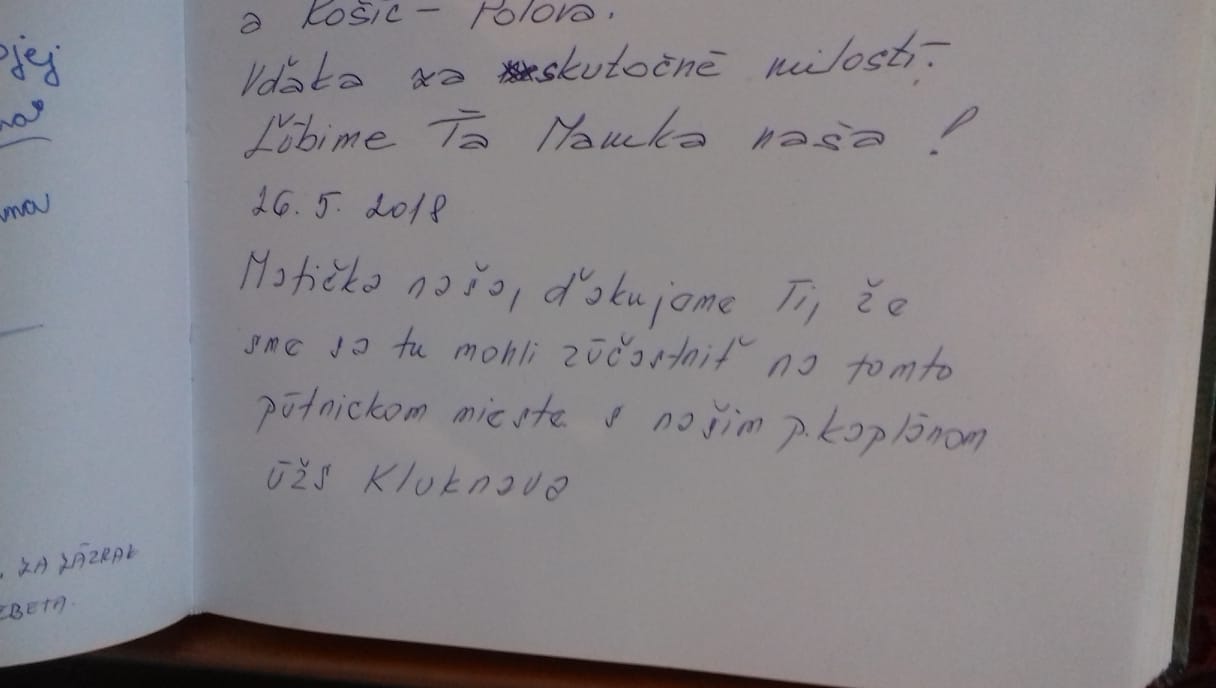 ojej
ma
ZA ZÁZRAK
ZBETA.
a Košíc - Poľova.
Vďaka za skutočné milosti.
Ľúbime Ťa Mamka naša!
26. 5. 2018
Matička naša, ďakujeme Ti, že
sme sa tu mohli zúčastniť na tomto
pútnickom mieste s našim p. kaplánom
ÚŽS Kluknava